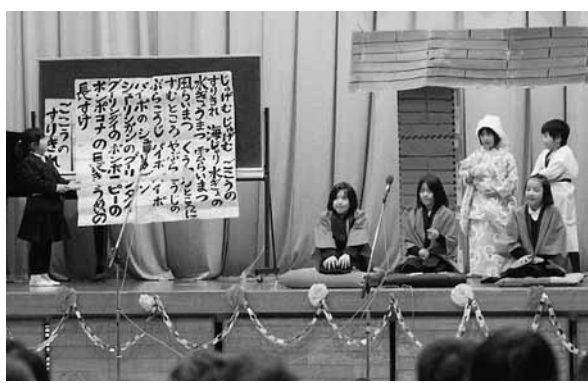 じゅげむ じゅげむ ごこうの
すりきれ 海じゃり水ぎょの
水ぎょうまつ 雲らいまつ
風らいまつ くう、ねるところに
すむところ やぶらこうじの
ぶらこうじ パイポ パイポ
パイポの シューリンガン
シューリンガンの グーリンダイ
グーリンダイの ポンポコピーの
ポンポコナの 長きゅうめいの
長すけ
ごこうの
すりきれ